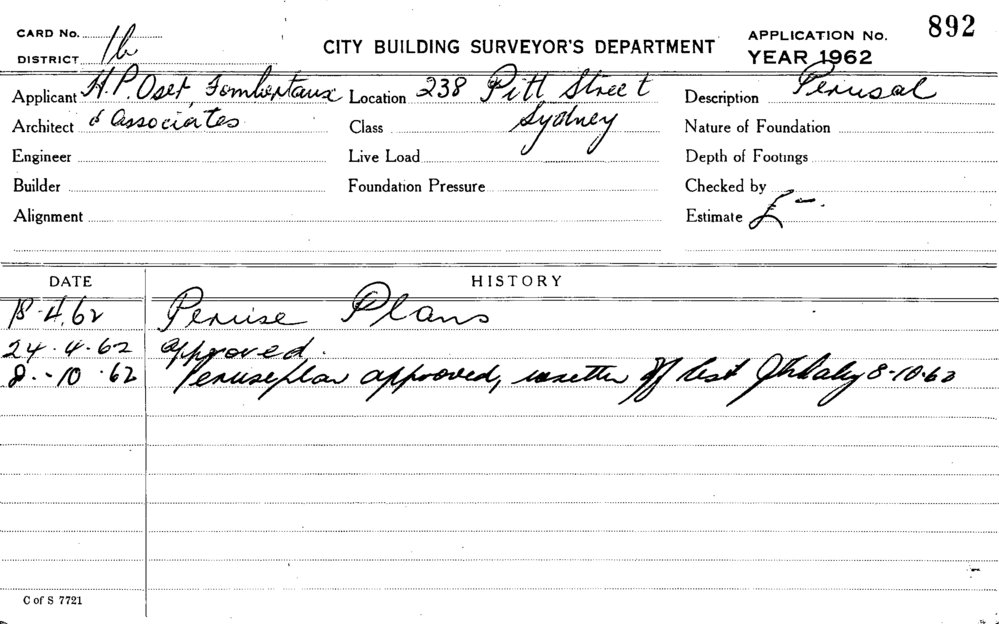 CARD No.
DISTRICT 1b
CITY BUILDING SURVEYOR'S DEPARTMENT
APPLICATION No. 892
YEAR 1962
Applicant H.P. Oser, Fombertaux Location 238 Pitt Street Description Perusal
Architect & Associates Class Sydney Nature of Foundation
Engineer Live Load Depth of Footings
Builder Foundation Pressure Checked by
Alignment Estimate £ -.
DATE HISTORY
18.4.62 Peruse Plans
24.4.62 approved.
8.-10.62 Peruse plan approved, off 8-10-62
C of S 7721